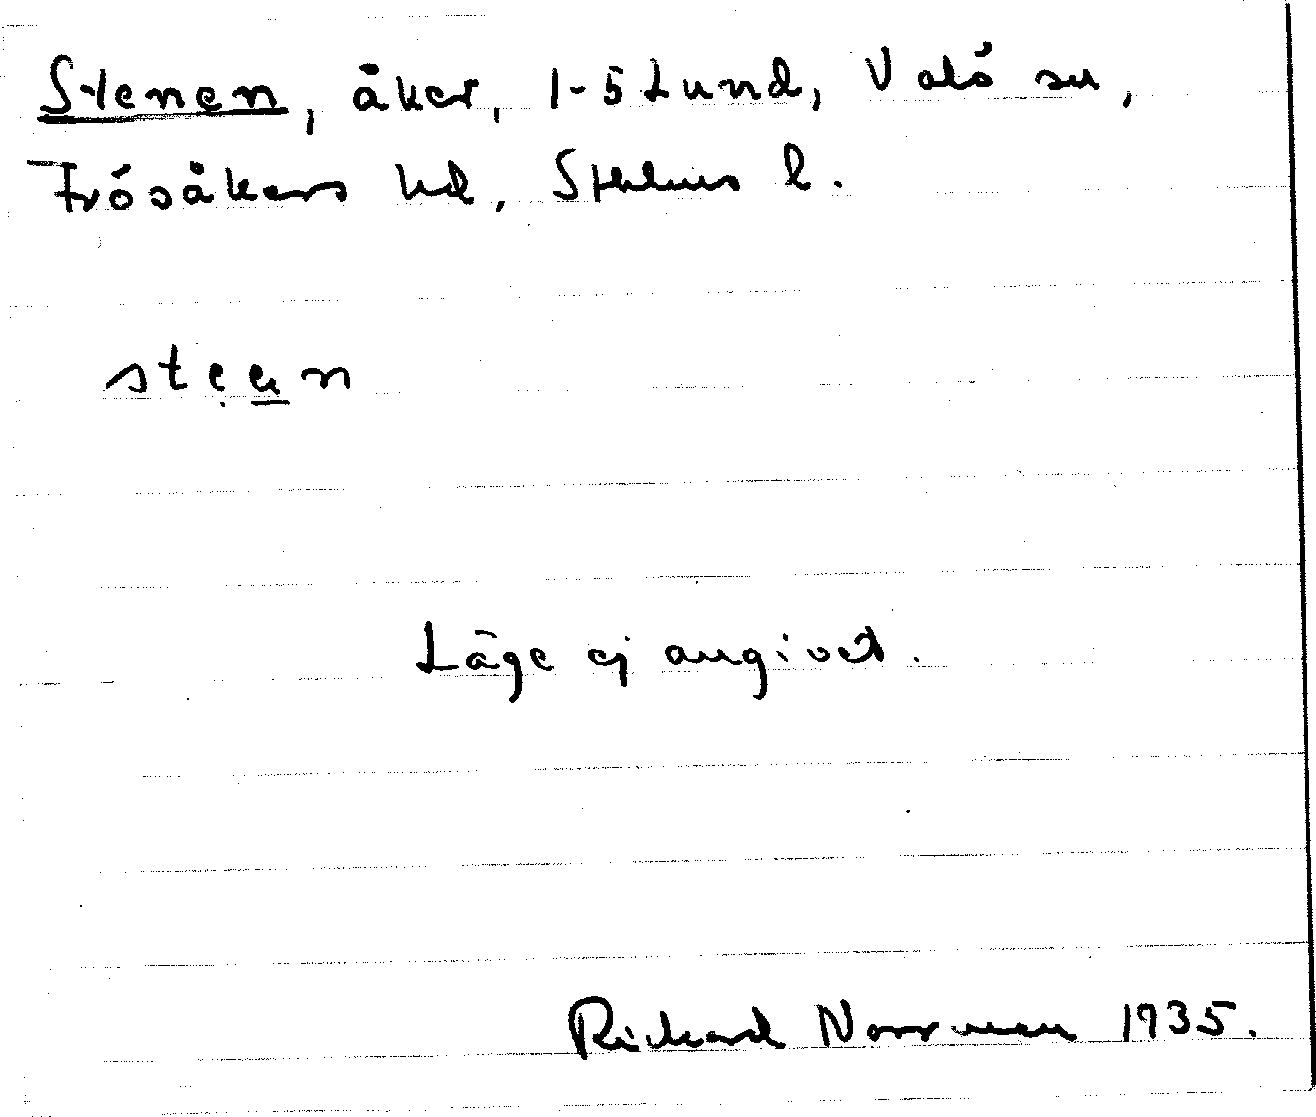 Stenen, åker, 1-5 Lund, Valö sn,
Frösåkers hd, Sthlms l.
stẹa̲n
Läge ej angivet.
Rickard Norrman 1935.